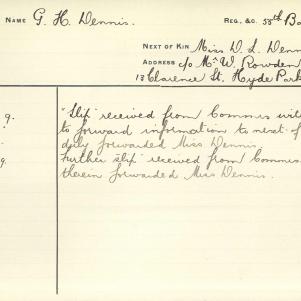 NAME G. H. Dennis. REG. &C. 53th Ba
NEXT OF KIN Miss D. L. Denn
ADDRESS c/o Mrs W. Rowden
13 Clarence St. Hyde Park
9. "Slip" received from Commis with
to forward information to next of
duly forwarded Miss Dennis
9 Further "slip" received from Commis
therein forwarded Miss Dennis.